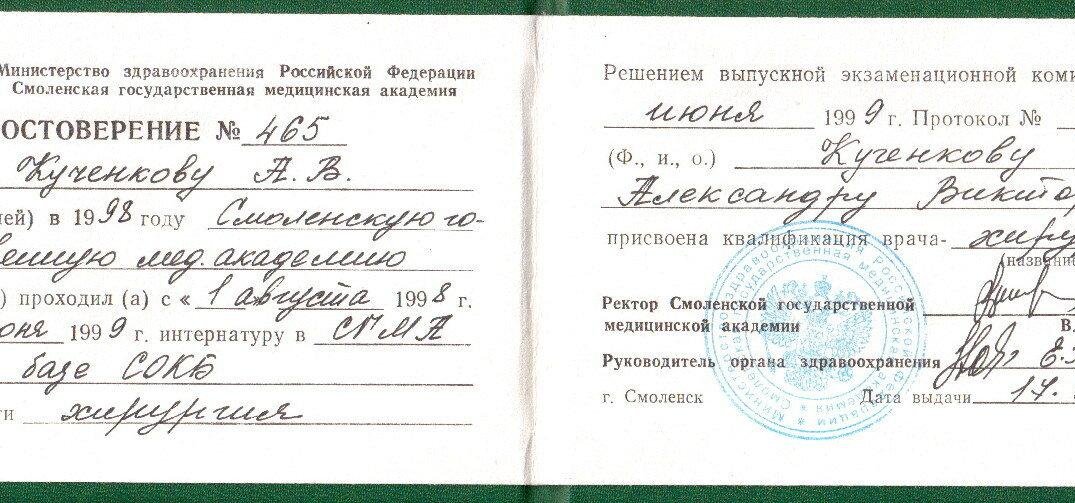 Министерство здравоохранения Российской Федерации
Смоленская государственная медицинская академия
ОСТОВЕРЕНИЕ № 465
Кученкову А. В.
ей) в 1998 году Смоленскую го-
венную мед. академию
) проходил (а) с « 1 августа 1998 г.
юня 1999 г. интернатуру в СГМА
базе СОКБ
ти хирургия
Решением выпускной экзаменационной коми
июня 1999 г. Протокол №
(Ф., и., о.) Кученкову
Александру Виктор
присвоена квалификация врача- хиру
(название
Ректор Смоленской государственной
медицинской академии В.
Руководитель органа здравоохранения
г. Смоленск Дата выдачи 17.